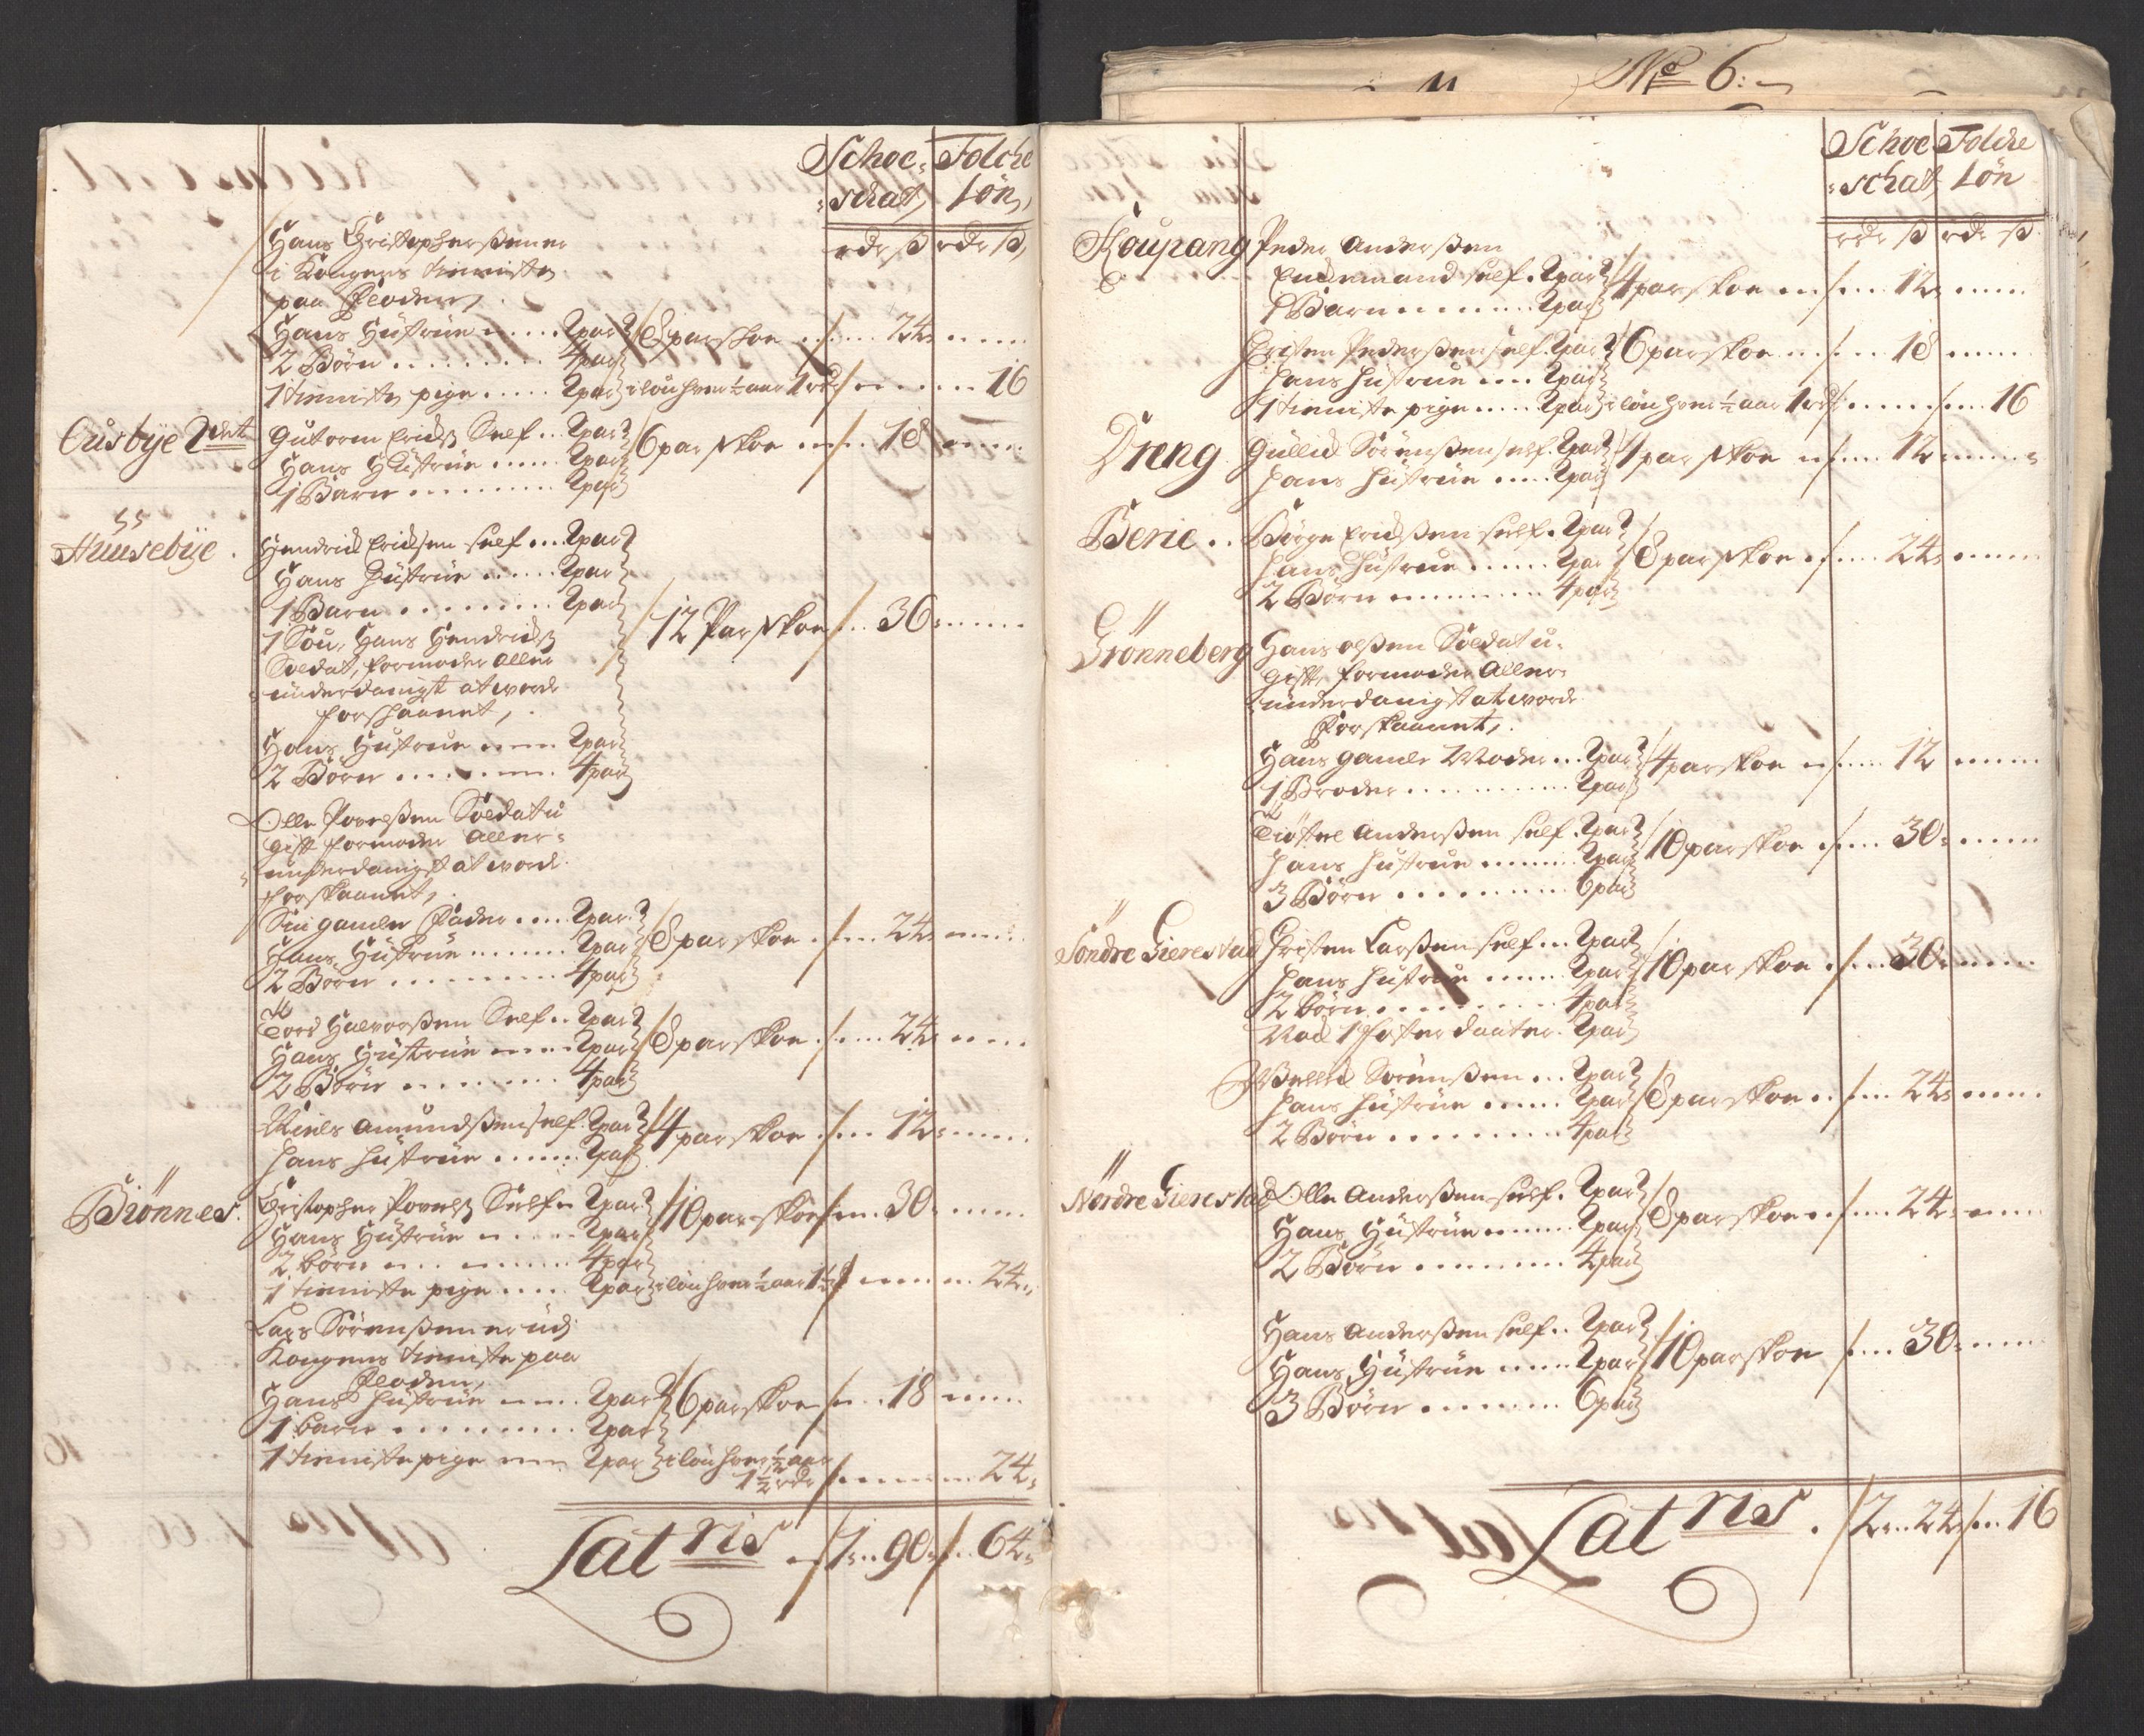 No 6:
Schoe- Folche
schat Lön
rdr ß rdr ß
Hans Christophersßen er
i Kongens tienniste
paa Floden
Hans Hustrue 2 par 8 par skoe 24
2 Börn 4 par
1 tienniste pige 2 par i lön hver ½ aar 1 rdr 16
Ousbye
Gutorm Erichs Self 2 par 6 par skoe 18
Hans Hustrue 2 par
1 Barn 2 par
Huusebye
Hendrich Erichsen self 2 par
Hans Hustrue 2 par
1 Barn 2 par 12 Par skoe 36
1 Sön, Hans Hendrichs
Soldat, formoder aller
underdanigst at worde
forschaanet,
Hans Hustrue 2 par
2 Börn 4 par
Olle Povelßen Soldat u
gift formoder aller-
underdanigst at worde
forskaanet,
Sin gamle Fader 2 par 8 par skoe 24
Hans Hustrue 2 par
2 Börn 4 par
Tord Halvorßen Self 2 par 8 par skoe 24
Hans Hustrue 2 par
2 Börn 4 par
Niels Amundßen self 2 par 4 par skoe 12
Hans Hustrue 2 par
Biönnes
Christopher Povels Self 2 par 10 par skoe 30
Hans Hustrue 2 par
2 börn 4 par
1 tienniste pige 2 par i lön hver ½ aar 1½ 24
Lars Sörenßen er udj
Kongens tienniste paa
Floden,
Hans Hustrue 2 par 6 par skoe 18
1 barn 2 par
1 tienniste pige 2 par i lön hver ½ aar
1½ rdr 24
Latris 7 90 64
Schoe Folche
schat Lön
rdr ß rdr ß
Koupang Peder Anderßen
Enckemand self 2 par 4 par skoe 12
1 Barn 2 par
Christen Pederßen self 2 par 6 par skoe 18
Hans Hustrue 2 par
1 tienniste pige 2 par i lön hver ½ aar 1 rdr 16
Dreng Gullich Sörenßen self 2 par 4 par skoe 12
Hans Hustrue 2 par
Berie Börge Erichßen self 2 par 8 par skoe 24
Hans Hustrue 2 par
2 Börn 4 par
Grönneberg Hans Olßen Soldat u-
gift, formoder Aller-
underdanigst at worde
Forskaanet,
Hans gamle Moder 2 par 4 par skoe 12
1 Broder 2 par
Anderßen self 2 par 10 par skoe 30
Hans Hustrue 2 par
3 Börn 6 par
Söndre Gierestad Christen Larßen self 2 par 10 par skoe 30
Hans Hustrue 2 par
2 börn 4 par
Nock 1 Foster daater 2 par
Sörenßen 2 par 8 par skoe 24
Hans Hustrue 2 par
2 Börn 4 par
Nordre Gierestad Olle Anderßen self 2 par 8 par skoe 24
Hans Hustrue 2 par
2 Börn 4 par
Hans Anderßen self 2 par 10 par skoe 30
Hans Hustrue 2 par
3 Börn 6 par
Latris 2 24 16